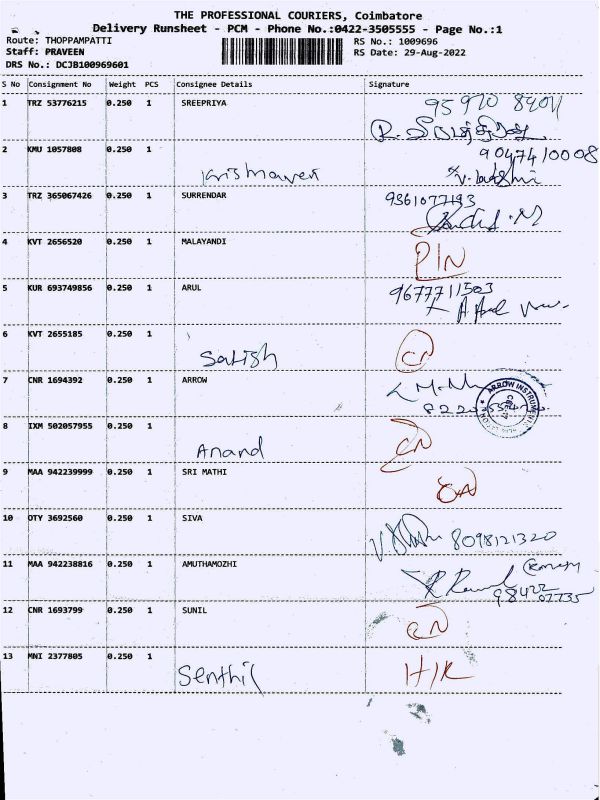 THE PROFESSIONAL COURIERS, Coimbatore
Delivery Runsheet - PCM - Phone No.:0422-3505555 - Page No.:1
Route: THOPPAMPATTI RS No.: 1009696
Staff: PRAVEEN RS Date: 29-Aug-2022
DRS No.: DCJB100969601
S No Consignment No Weight PCS Consignee Details Signature
1 TRZ 53776215 0.250 1 SREEPRIYA
2 KMU 1057808 0.250 1 9047410008
3 TRZ 365067426 0.250 1 SURRENDAR 9361077193
4 KVT 2656520 0.250 1 MALAYANDI PIN
5 KUR 693749856 0.250 1 ARUL 9677711503
6 KVT 2655185 0.250 1 Satish
7 CNR 1694392 0.250 1 ARROW ARROW INSTRUMENTS
8 IXM 502057955 0.250 1 Anand
9 MAA 942239999 0.250 1 SRI MATHI
10 OTY 3692560 0.250 1 SIVA 8098121320
11 MAA 942238816 0.250 1 AMUTHAMOZHI 98422 07735
12 CNR 1693799 0.250 1 SUNIL
13 MNI 2377805 0.250 1 Senthil